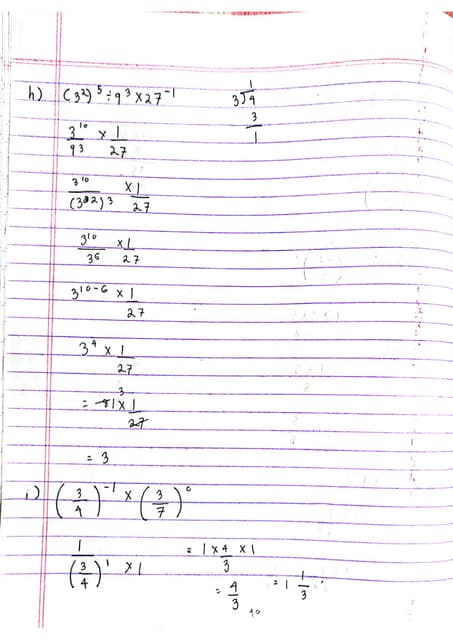 h) (3²)⁵ ÷ 9³ × 27⁻¹
3¹⁰/9³ × 1/27
3¹⁰/(3²)³ × 1/27
3¹⁰/3⁶ × 1/27
3¹⁰⁻⁶ × 1/27
3⁴ × 1/27
= 81 × 1/27
3
= 3
1
3)4
3
1
i) (3/4)⁻¹ × (3/7)⁰
1/(3/4)¹ × 1
= 1 × 4/3 × 1
= 4/3 = 1 1/3